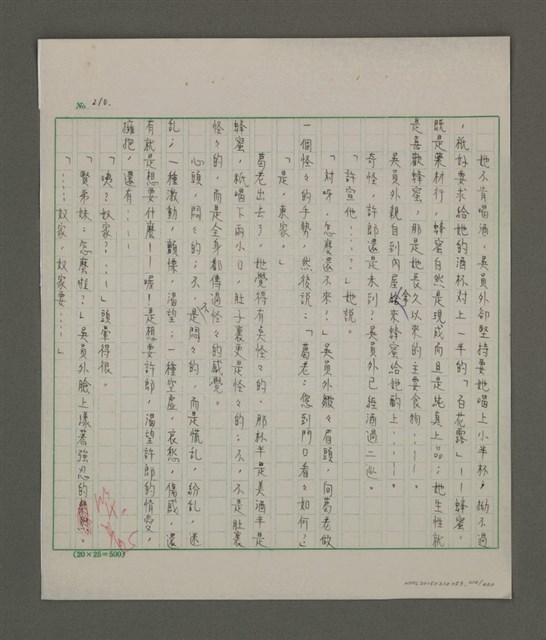 No. 210.
她不肯喝酒,吳員外卻堅持要她喝上小半杯,拗不過
,祇好要求給她的酒杯対上一半的「百花露」——蜂蜜。
既是藥材行,蜂蜜自然是現成而且是純真上品;她生性就
是喜歡蜂蜜,那是她長久以來的主要食物……。
吳員外親自到內屋拿來蜂蜜給她酌上……。
奇怪,許郎還是未到?吳員外已經酒過二巡。
「許宣他……?」她說
「対呀,怎麼還不來?」吳員外皺々眉頭,向葛老做
一個怪々的手勢,然後說:「葛老:您到門口看々如何?」
「是,東家。」
葛老出去了,她覺得有矣怪々的,那杯半是美酒半是
蜂蜜,祇喝下兩小口,肚子裏更是怪々的;不,不是肚裏
怪々的,而是全身都傳過怪々的感覺。
心頭,悶々的;不,不是悶々的,而是慌乱,紛乱,迷
乱;一種激動,顫慄,渴望;一種空虛,哀愁,傷感,還
有就是想要什麼——喔!是想要許郎,渴望許郎的情愛,
擁抱,還有……
「唤?奴家?……」頭暈得很。
「賢弟妹:怎麼啦?」吳員外臉上漾著強忍的
「……奴家,奴家要……」
(20×25=500)